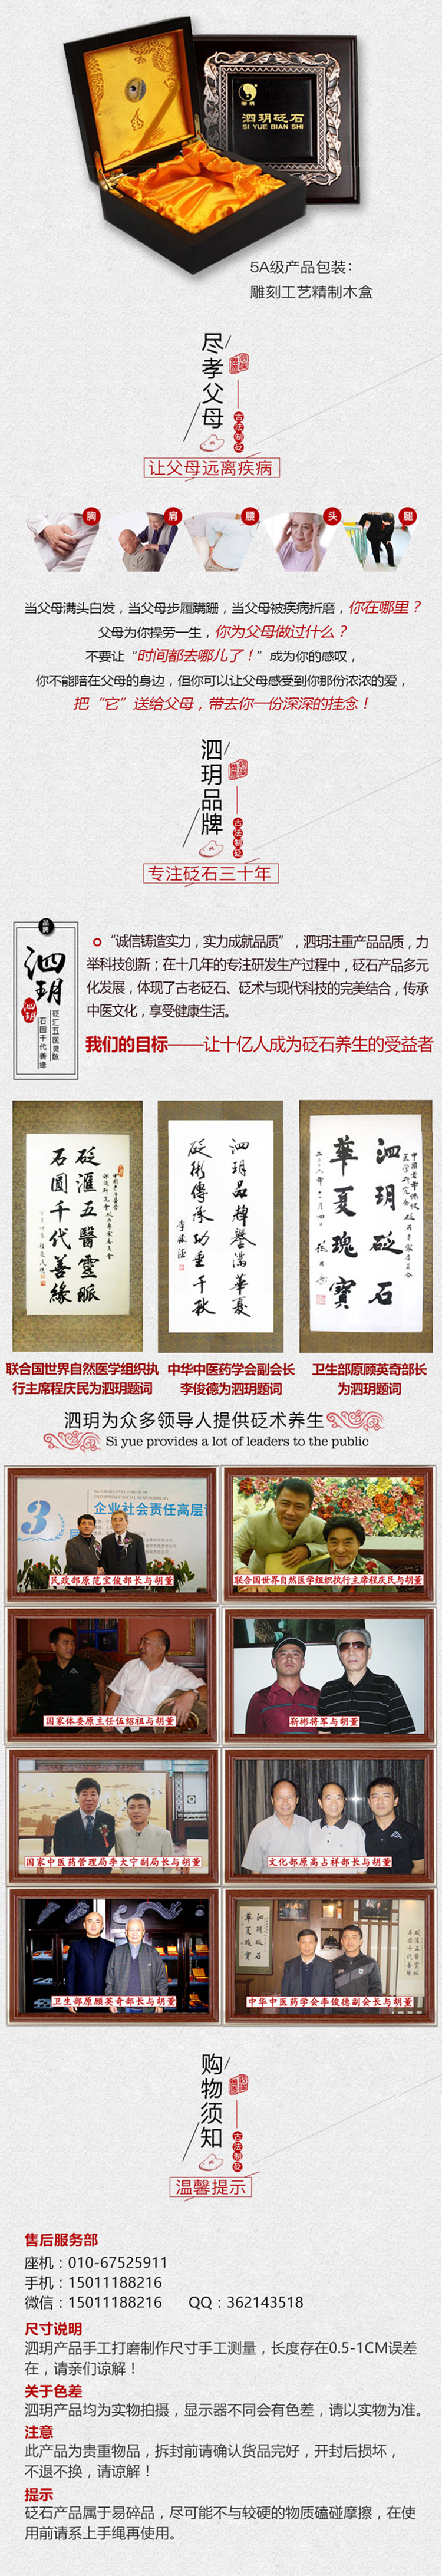 泗玥砭石
SI YUE BIAN SHI
5A级产品包装：
雕刻工艺精制木盒
尽孝父母
古法制砭
让父母远离疾病
胸
肩
腰
头
腿
当父母满头白发，当父母步履蹒跚，当父母被疾病折磨，你在哪里？
父母为你操劳一生，你为父母做过什么？
不要让“时间都去哪儿了！”成为你的感叹，
你不能陪在父母的身边，但你可以让父母感受到你那份浓浓的爱，
把“它”送给父母，带去你一份深深的挂念！
泗玥品牌
古法制砭
专注砭石三十年
品牌
泗玥
砭汇五医灵脉
石圆千代善缘
“诚信铸造实力，实力成就品质”，泗玥注重产品品质，力
举科技创新；在十几年的专注研发生产过程中，砭石产品多元
化发展，体现了古老砭石、砭术与现代科技的完美结合，传承
中医文化，享受健康生活。
我们的目标——让十亿人成为砭石养生的受益者
砭滙五醫靈脈
石圓千代善緣
泗玥品牌譽滿華夏
砭術傳承功垂千秋
李俊德
泗玥砭石
華夏瑰寶
联合国世界自然医学组织执
行主席程庆民为泗玥题词
中华中医药学会副会长
李俊德为泗玥题词
卫生部原顾英奇部长
为泗玥题词
泗玥为众多领导人提供砭术养生
Si yue provides a lot of leaders to the public
企业社会责任高层论
民政部原范宝俊部长与胡董
联合国世界自然医学组织执行主席程庆民与胡董
国家体委原主任伍绍祖与胡董
靳彬将军与胡董
国家中医药管理局李大宁副局长与胡董
文化部原高占祥部长与胡董
卫生部原顾英奇部长与胡董
中华中医药学会李俊德副会长与胡董
购物须知
古法制砭
温馨提示
售后服务部
座机：010-67525911
手机：15011188216
微信：15011188216 QQ：362143518
尺寸说明
泗玥产品手工打磨制作尺寸手工测量，长度存在0.5-1CM误差
在，请亲们谅解！
关于色差
泗玥产品均为实物拍摄，显示器不同会有色差，请以实物为准。
注意
此产品为贵重物品，拆封前请确认货品完好，开封后损坏，
不退不换，请谅解！
提示
砭石产品属于易碎品，尽可能不与较硬的物质磕碰摩擦，在使
用前请系上手绳再使用。